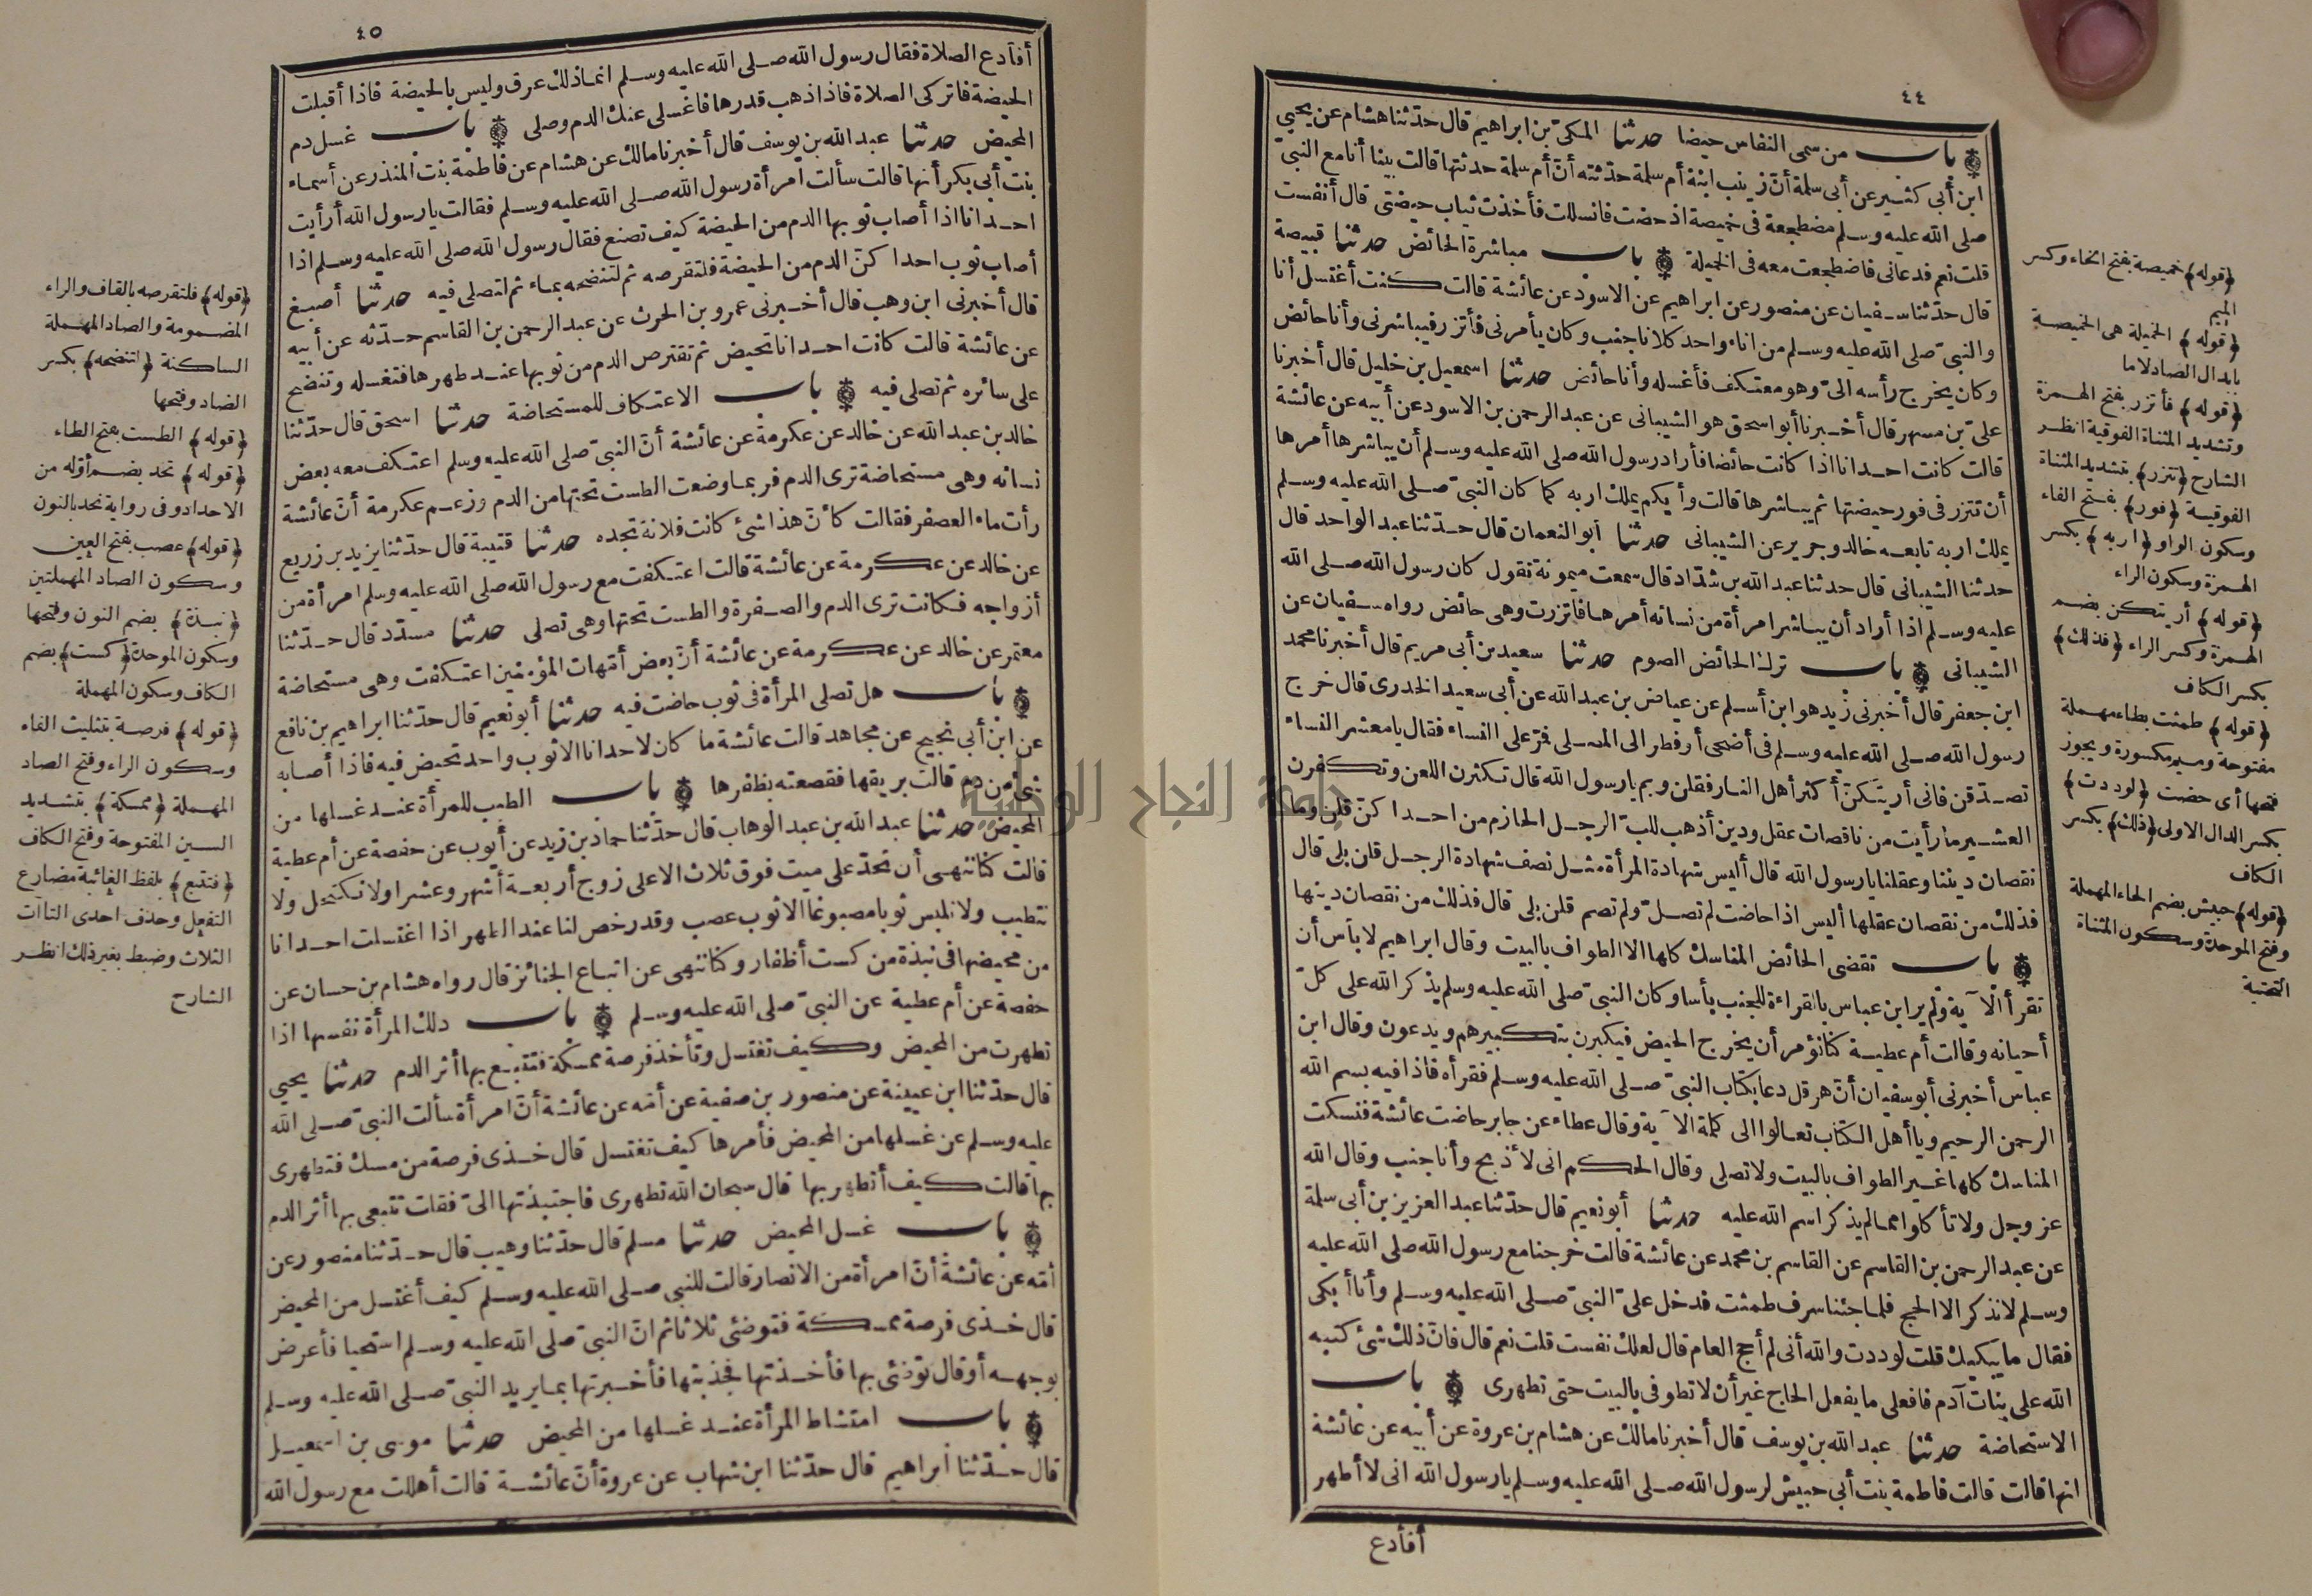 ٤٤
باب من سمى النفاس حيضا حدثنا المكىّ بن ابراهيم قال حدّثنا هشام عن يحيى
ابن أبى كثير عن أبى سلمة أنّ زينب ابنة أم سلمة حدّثته أنّ أم سلمة حدثتها قالت بينا أنا مع النبىّ
صلى الله عليه وسلم مضطجعة فى خميصة اذ حضت فانسللت فأخذت ثياب حيضتى قال أنفست
قلت نعم فدعانى فاضطجعت معه فى الخميلة باب مباشرة الحائض حدثنا قبيصة
قال حدّثنا سفيان عن منصور عن ابراهيم عن الاسود عن عائشة قالت كنت أغتسل أنا
والنبىّ صلى الله عليه وسلم من اناء واحد كلانا جنب وكان يأمرنى فأتزر فيباشرنى وأنا حائض
وكان يخرج رأسه الىّ وهو معتكف فأغسله وأنا حائض حدثنا اسمعيل بن خليل قال أخبرنا
علىّ بن مسهر قال أخبرنا أبو اسحق هو الشيبانى عن عبد الرحمن بن الاسود عن أبيه عن عائشة
قالت كانت احدانا اذا كانت حائضا فأراد رسول الله صلى الله عليه وسلم أن يباشرها أمرها
أن تتزر فى فور حيضتها ثم يباشرها قالت وأيكم يملك اربه كما كان النبىّ صلى الله عليه وسلم
يملك اربه تابعه خالد وجرير عن الشيبانى حدثنا أبو النعمان قال حدّثنا عبد الواحد قال
حدثنا الشيبانى قال حدثنا عبد الله بن شدّاد قال سمعت ميمونة تقول كان رسول الله صلى الله
عليه وسلم اذا أراد أن يباشر امرأة من نسائه أمرها فاتزرت وهى حائض رواه سفيان عن
الشيبانى باب ترك الحائض الصوم حدثنا سعيد بن أبى مريم قال أخبرنا محمد
ابن جعفر قال أخبرنى زيد هو ابن أسلم عن عياض بن عبد الله عن أبى سعيد الخدرى قال خرج
رسول الله صلى الله عليه وسلم فى أضحى أو فطر الى المصلى فمرّ على النساء فقال يا معشر النساء
تصدّقن فانى أريتكنّ أكثر أهل النار فقلن وبم يا رسول الله قال تكثرن اللعن وتكفرن
العشير ما رأيت من ناقصات عقل ودين أذهب للبّ الرجل الحازم من احداكنّ قلن وما
نقصان ديننا وعقلنا يا رسول الله قال أليس شهادة المرأة مثل نصف شهادة الرجل قلن بلى قال
فذلك من نقصان عقلها أليس اذا حاضت لم تصلّ ولم تصم قلن بلى قال فذلك من نقصان دينها
باب تقضى الحائض المناسك كلها الا الطواف بالبيت وقال ابراهيم لا بأس أن
تقرأ الآية ولم ير ابن عباس بالقراءة للجنب بأسا وكان النبىّ صلى الله عليه وسلم يذكر الله على كلّ
أحيانه وقالت أم عطية كنا نؤمر أن يخرج الحيض فيكبرن بتكبيرهم ويدعون وقال ابن
عباس أخبرنى أبو سفيان أنّ هرقل دعا بكتاب النبىّ صلى الله عليه وسلم فقرأه فاذا فيه بسم الله
الرحمن الرحيم ويا أهل الكتاب تعالوا الى كلمة الآية وقال عطاء عن جابر حاضت عائشة فنسكت
المناسك كلها غير الطواف بالبيت ولا تصلى وقال الحكم انى لأذبح وأنا جنب وقال الله
عز وجل ولا تأكلوا مما لم يذكر اسم الله عليه حدثنا أبو نعيم قال حدّثنا عبد العزيز بن أبى سلمة
عن عبد الرحمن بن القاسم عن القاسم بن محمد عن عائشة قالت خرجنا مع رسول الله صلى الله عليه
وسلم لا نذكر الا الحج فلما جئنا سرف طمثت فدخل علىّ النبىّ صلى الله عليه وسلم وأنا أبكى
فقال ما يبكيك قلت لوددت والله أنى لم أحج العام قال لعلك نفست قلت نعم قال فانّ ذلك شئ كتبه
الله على بنات آدم فافعلى ما يفعل الحاج غير أن لا تطوفى بالبيت حتى تطهرى باب
الاستحاضة حدثنا عبد الله بن يوسف قال أخبرنا مالك عن هشام بن عروة عن أبيه عن عائشة
انها قالت قالت فاطمة بنت أبى حبيش لرسول الله صلى الله عليه وسلم يا رسول الله انى لا أطهر
أفأدع
﴿قوله﴾ خميصة بفتح الخاء وكسر
الميم
﴿قوله﴾ الخميلة هى الخميصة
بابدال الصاد لاما
﴿قوله﴾ فأتزر بفتح الهمزة
وتشديد المثناة الفوقية انظر
الشارح ﴿تتزر﴾ بتشديد المثناة
الفوقية ﴿فور﴾ بفتح الفاء
وسكون الواو ﴿اربه﴾ بكسر
الهمزة وسكون الراء
﴿قوله﴾ أريتكن بضم
الهمزة وكسر الراء ﴿فذلك﴾
بكسر الكاف
﴿قوله﴾ طمثت بطاء مهملة
مفتوحة وميم مكسورة ويجوز
فتحها أى حضت ﴿لوددت﴾
بكسر الدال الاولى ﴿ذلك﴾ بكسر
الكاف
﴿قوله﴾ حبيش بضم الحاء المهملة
وفتح الموحدة وسكون المثناة
التحتية
٤٥
أفأدع الصلاة فقال رسول الله صلى الله عليه وسلم انما ذلك عرق وليس بالحيضة فاذا أقبلت
الحيضة فاتركى الصلاة فاذا ذهب قدرها فاغسلى عنك الدم وصلى باب غسل دم
المحيض حدثنا عبد الله بن يوسف قال أخبرنا مالك عن هشام عن فاطمة بنت المنذر عن أسماء
بنت أبى بكر أنها قالت سألت امرأة رسول الله صلى الله عليه وسلم فقالت يا رسول الله أرأيت
احدانا اذا أصاب ثوبها الدم من الحيضة كيف تصنع فقال رسول الله صلى الله عليه وسلم اذا
أصاب ثوب احداكنّ الدم من الحيضة فلتقرصه ثم لتنضحه بماء ثم لتصلى فيه حدثنا أصبغ
قال أخبرنى ابن وهب قال أخبرنى عمرو بن الحرث عن عبد الرحمن بن القاسم حدّثه عن أبيه
عن عائشة قالت كانت احدانا تحيض ثم تقترص الدم من ثوبها عند طهرها فتغسله وتنضح
على سائره ثم تصلى فيه باب الاعتكاف للمستحاضة حدثنا اسحق قال حدّثنا
خالد بن عبد الله عن خالد عن عكرمة عن عائشة أنّ النبىّ صلى الله عليه وسلم اعتكف معه بعض
نسائه وهى مستحاضة ترى الدم فربما وضعت الطست تحتها من الدم وزعم عكرمة أنّ عائشة
رأت ماء العصفر فقالت كأنّ هذا شئ كانت فلانة تجده حدثنا قتيبة قال حدّثنا يزيد بن زريع
عن خالد عن عكرمة عن عائشة قالت اعتكفت مع رسول الله صلى الله عليه وسلم امرأة من
أزواجه فكانت ترى الدم والصفرة والطست تحتها وهى تصلى حدثنا مسدّد قال حدّثنا
معتمر عن خالد عن عكرمة عن عائشة أنّ بعض أمّهات المؤمنين اعتكفت وهى مستحاضة
باب هل تصلى المرأة فى ثوب حاضت فيه حدثنا أبو نعيم قال حدّثنا ابراهيم بن نافع
عن ابن أبى نجيح عن مجاهد قالت عائشة ما كان لاحدانا الا ثوب واحد تحيض فيه فاذا أصابه
شئ من دم قالت بريقها فقصعته بظفرها باب الطيب للمرأة عند غسلها من
المحيض حدثنا عبد الله بن عبد الوهاب قال حدّثنا حماد بن زيد عن أيوب عن حفصة عن أم عطية
قالت كنا ننهى أن نحدّ على ميت فوق ثلاث الا على زوج أربعة أشهر وعشرا ولا نكتحل ولا
نتطيب ولا نلبس ثوبا مصبوغا الا ثوب عصب وقد رخص لنا عند الطهر اذا اغتسلت احدانا
من محيضها فى نبذة من كست أظفار وكنا ننهى عن اتباع الجنائز قال رواه هشام بن حسان عن
حفصة عن أم عطية عن النبىّ صلى الله عليه وسلم باب دلك المرأة نفسها اذا
تطهرت من المحيض وكيف تغتسل وتأخذ فرصة ممسكة فتتبع بها أثر الدم حدثنا يحيى
قال حدّثنا ابن عيينة عن منصور بن صفية عن أمّه عن عائشة أنّ امرأة سألت النبىّ صلى الله
عليه وسلم عن غسلها من المحيض فأمرها كيف تغتسل قال خذى فرصة من مسك فتطهرى
بها قالت كيف أتطهر بها قال سبحان الله تطهرى فاجتبذتها الىّ فقلت تتبعى بها أثر الدم
باب غسل المحيض حدثنا مسلم قال حدّثنا وهيب قال حدّثنا منصور عن
أمّه عن عائشة أنّ امرأة من الانصار قالت للنبى صلى الله عليه وسلم كيف أغتسل من المحيض
قال خذى فرصة ممسكة فتوضئى ثلاثا ثم انّ النبىّ صلى الله عليه وسلم استحيا فأعرض
بوجهه أو قال توضئى بها فأخذتها فجذبتها فأخبرتها بما يريد النبىّ صلى الله عليه وسلم
باب امتشاط المرأة عند غسلها من المحيض حدثنا موسى بن اسمعيل
قال حدّثنا ابراهيم قال حدّثنا ابن شهاب عن عروة أنّ عائشة قالت أهللت مع رسول الله
﴿قوله﴾ فلتقرصه بالقاف والراء
المضمومة والصاد المهملة
الساكنة ﴿لتنضحه﴾ بكسر
الضاد وفتحها
﴿قوله﴾ الطست بفتح الطاء
﴿قوله﴾ نحد بضم أوّله من
الاحداد وفى رواية نحد بالنون
﴿قوله﴾ عصب بفتح العين
وسكون الصاد المهملتين
﴿نبذة﴾ بضم النون وفتحها
وسكون الموحدة ﴿كست﴾ بضم
الكاف وسكون المهملة
﴿قوله﴾ فرصة بتثليث الفاء
وسكون الراء وفتح الصاد
المهملة ﴿ممسكة﴾ بتشديد
السين المفتوحة وفتح الكاف
﴿فتتبع﴾ بلفظ الغائبة مضارع
التفعل وحذف احدى التاآت
الثلاث وضبط بغير ذلك انظر
الشارح
جامعة النجاح الوطنية